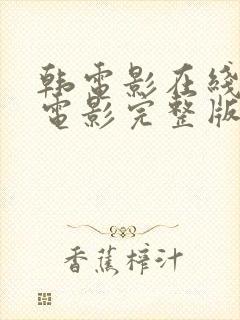 韩电影在线
电影完整版
香蕉榨汁